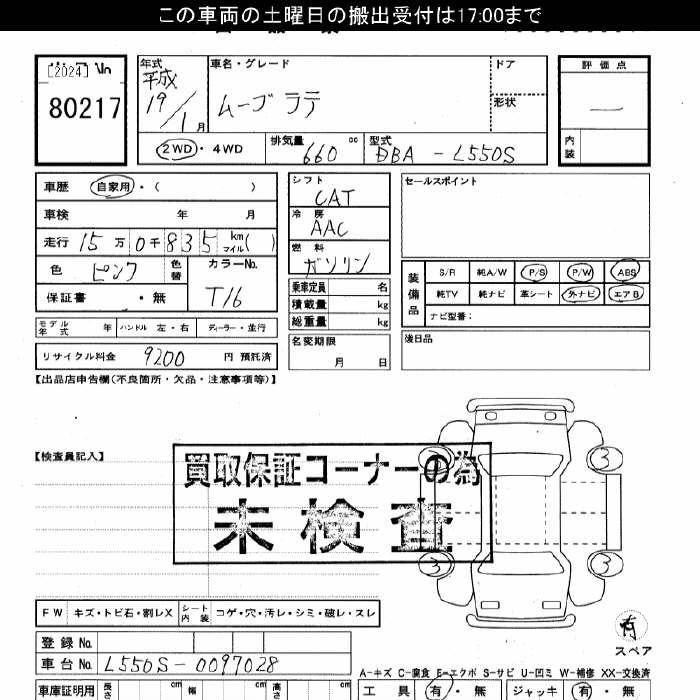 この車両の土曜日の搬出受付は17:00まで
[2024]
80217
年式
平成
19/1月
車名・グレード
ムーヴ ラテ
ドア
形状
評価点
—
内装
2WD・4WD
排気量
660 cc
型式
DBA - L550S
車歴 自家用・( )
車検 年 月
走行 15万0千835 km マイル( )
色 ピンク 色替
カラーNo. T16
保証書 ・無
モデル年式 年 ハンドル 左・右 ディーラー・並行
リサイクル料金 9200 円 預託済
シフト
CAT
冷房
AAC
燃料
ガソリン
乗車定員 名
積載量 kg
総重量 kg
名変期限
月 日
セールスポイント
装備品
S/R 純A/W P/S P/W ABS
純TV 純ナビ 革シート 外ナビ エアB
ナビ型番:
後日品
【出品店申告欄(不良箇所・欠品・注意事項等)】
【検査員記入】
買取保証コーナーの為
未検査
3 3
3 3
有
スペア
FW キズ・トビ石・割レX シート内装 コゲ・穴・汚レ・シミ・破レ・スレ
登録No.
車台No. L550S-0097028
A-キズ C-腐食 E-エクボ S-サビ U-凹ミ W-補修 XX-交換済
車庫証明用 長さ cm 幅 cm 高さ cm
工具 有・無 ジャッキ 有・無